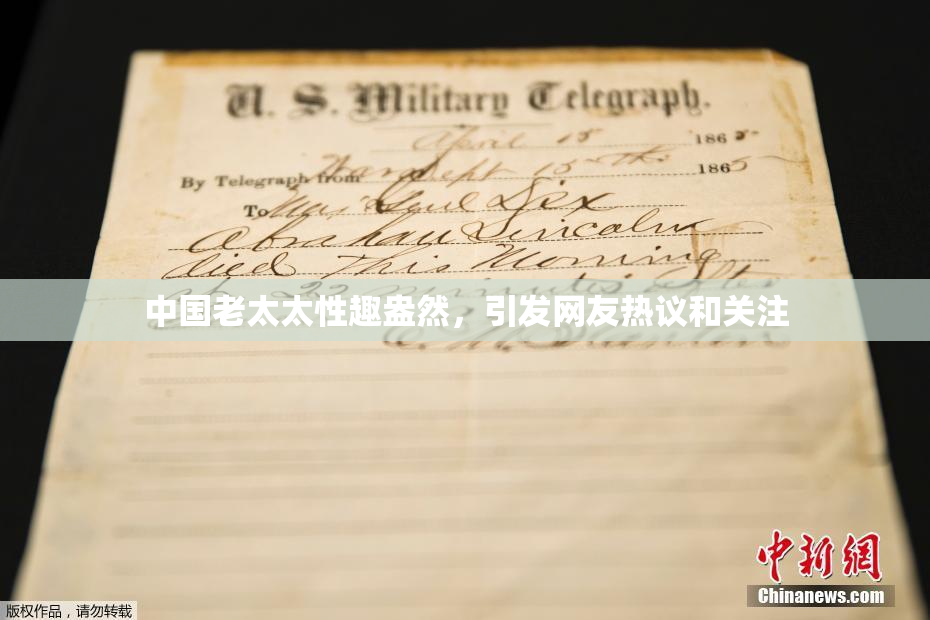 U. S. Military Telegraph.
April 15 1865
By Telegraph from War Dept 15th 1865
To Maj Genl Dix
Abraham Lincoln
died This Morning
at 22 minutes after
中国老太太性趣盎然，引发网友热议和关注
E. M. Stanton
中新网
Chinanews.com
版权作品，请勿转载